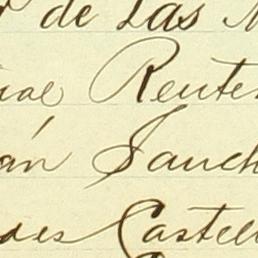 de Las
Reuter
án Sanch
des Castell